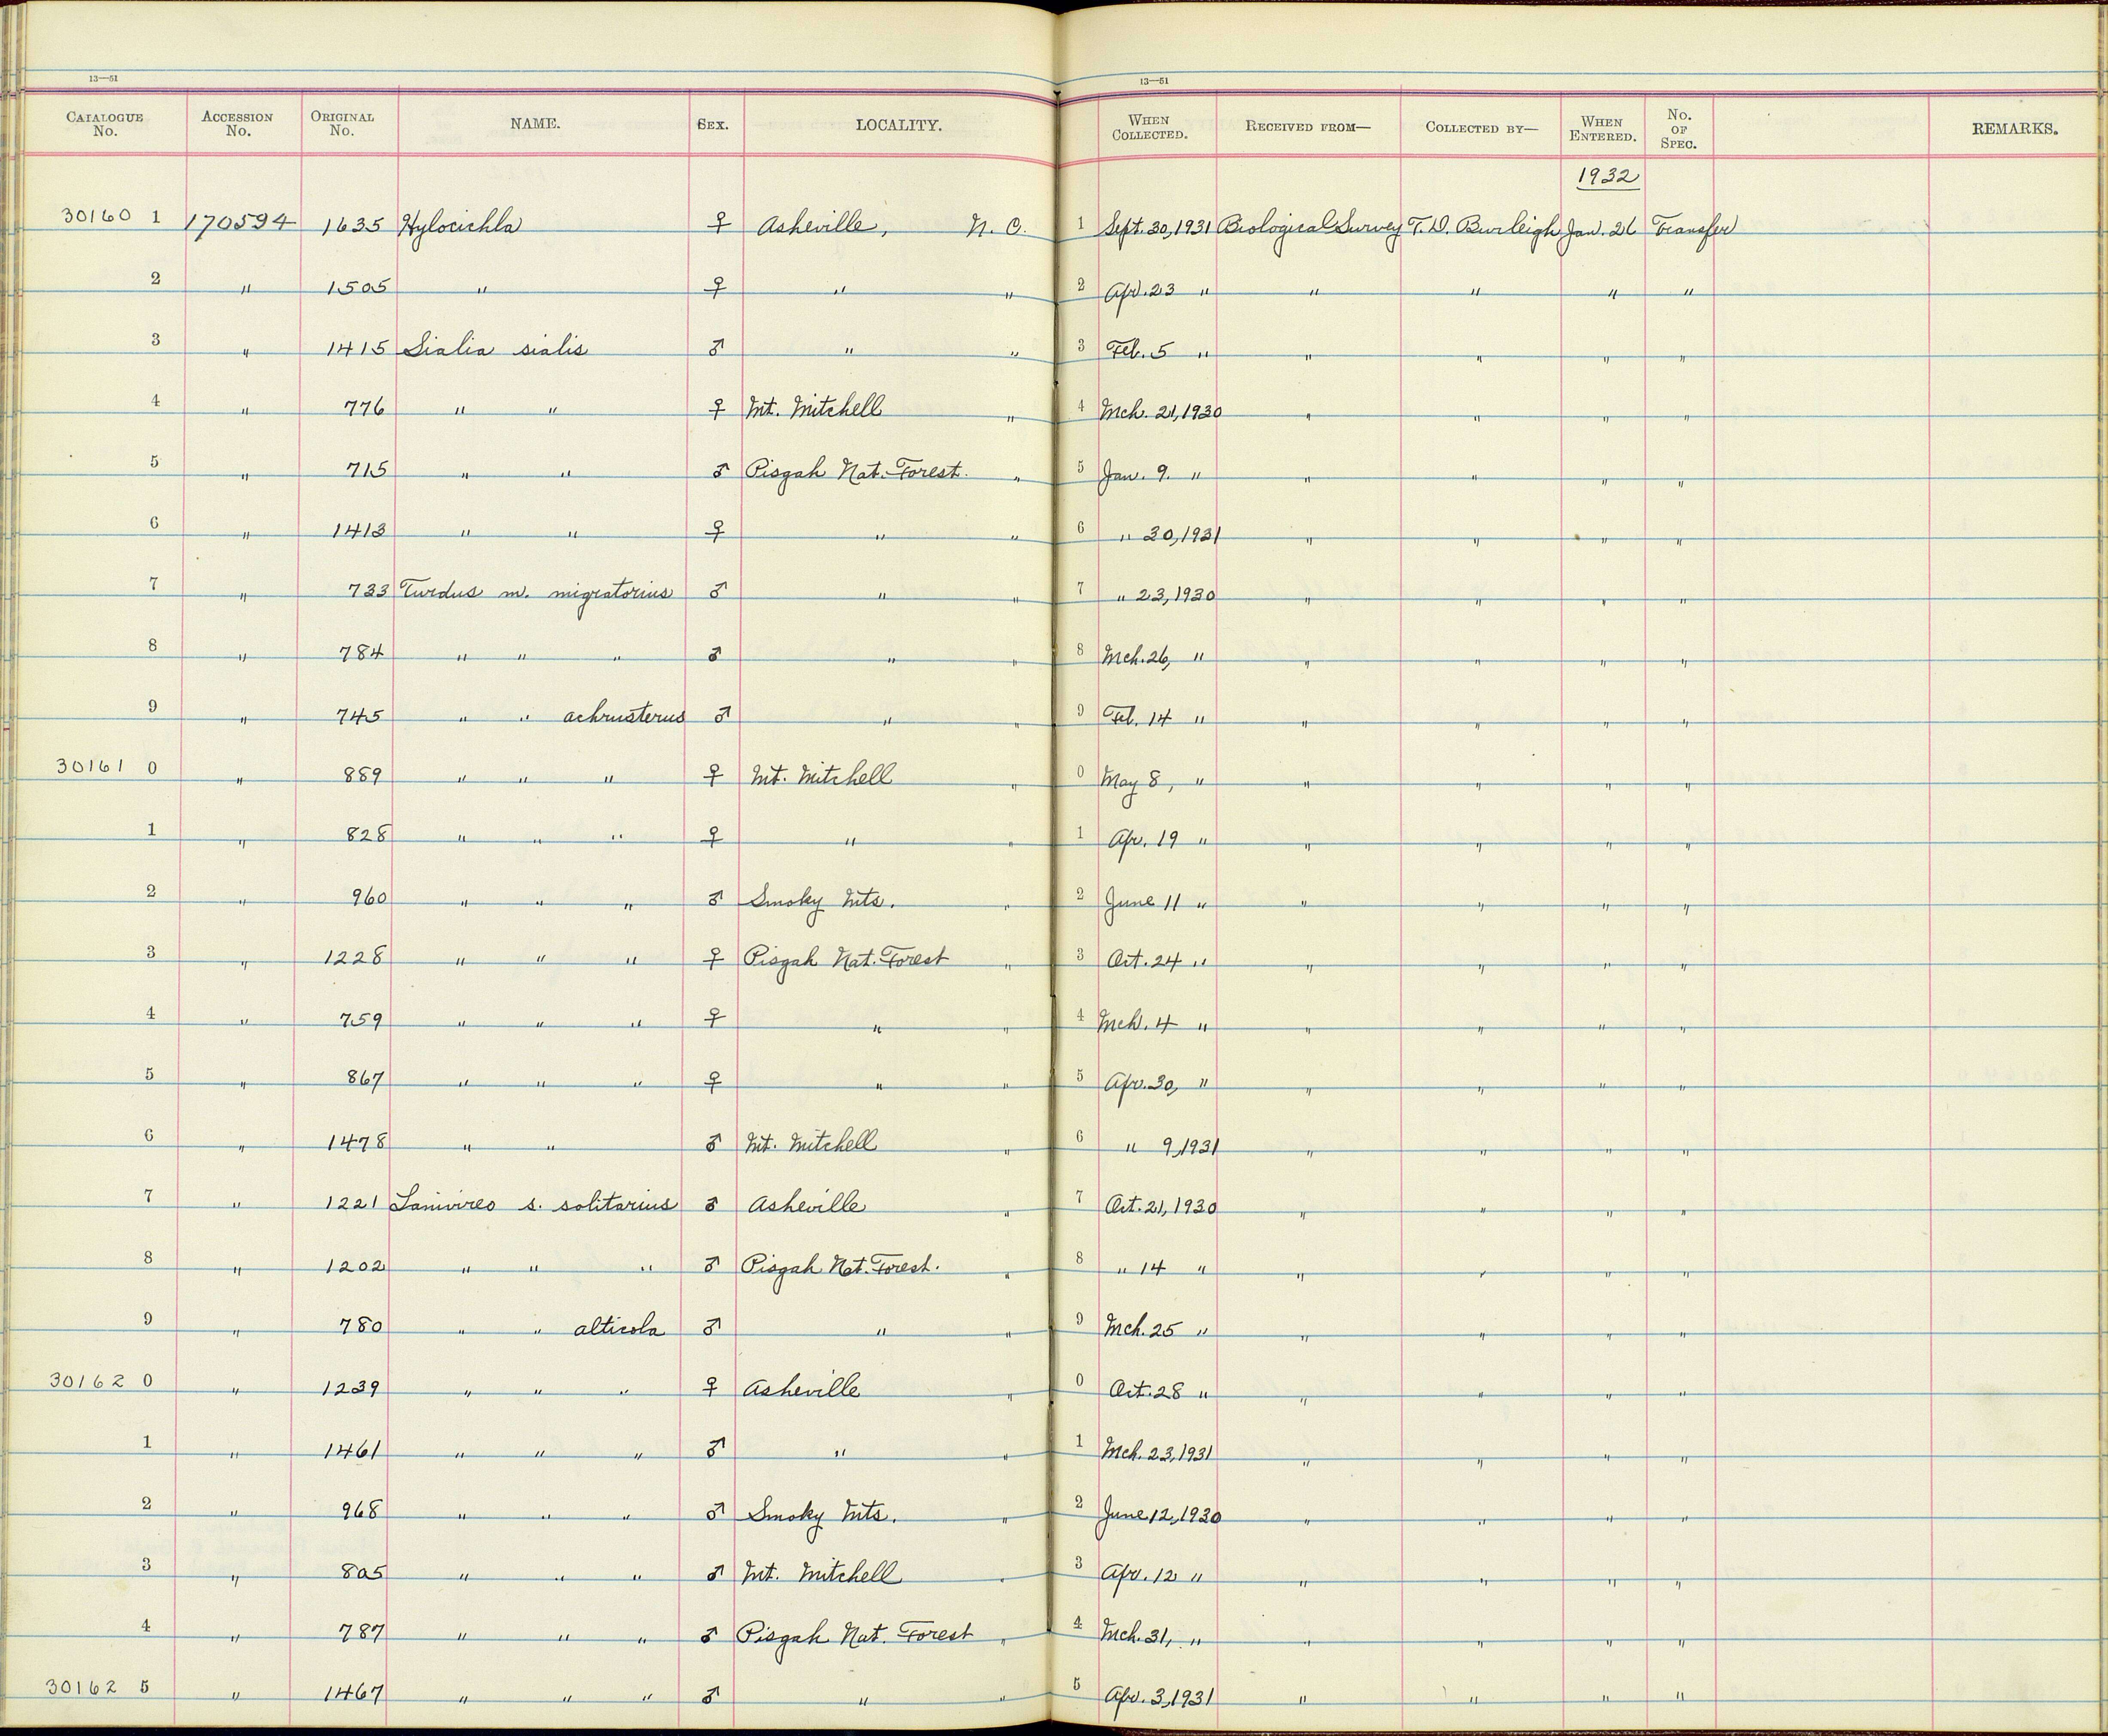 13—51 13—51
CATALOGUE No. ACCESSION No. ORIGINAL No. NAME. SEX. LOCALITY. WHEN COLLECTED. RECEIVED FROM— COLLECTED BY— WHEN ENTERED. No. OF SPEC. REMARKS.
1932
30160 1 170594 1635 Hylocichla ♀ Asheville, N. C. 1 Sept. 30, 1931 Biological Survey T. D. Burleigh Jan. 26 Transfer
2 " 1505 " ♀ " " 2 Apr. 23 " " " " "
3 " 1415 Sialia sialis ♂ " " 3 Feb. 5 " " " " "
4 " 776 " " ♀ Mt. Mitchell " 4 Mch. 21, 1930 " " " "
5 " 715 " " ♂ Pisgah Nat. Forest. " 5 Jan. 9. " " " " "
6 " 1413 " " ♀ " " 6 " 30, 1931 " " " "
7 " 733 Turdus m. migratorius ♂ " " 7 " 23, 1930 " " " "
8 " 784 " " " ♂ " " 8 Mch. 26, " " " " "
9 " 745 " " achrusterus ♂ " " 9 Feb. 14 " " " " "
30161 0 " 889 " " " ♀ Mt. Mitchell " 0 May 8, " " " " "
1 " 828 " " " ♀ " " 1 Apr. 19 " " " " "
2 " 960 " " " ♂ Smoky Mts. " 2 June 11 " " " " "
3 " 1228 " " " ♀ Pisgah Nat. Forest " 3 Oct. 24 " " " " "
4 " 759 " " " ♀ " " 4 Mch. 4 " " " " "
5 " 867 " " " ♀ " " 5 Apr. 30, " " " " "
6 " 1478 " " ♂ Mt. Mitchell " 6 " 9, 1931 " " " "
7 " 1221 Lanivireo s. solitarius ♂ Asheville " 7 Oct. 21, 1930 " " " "
8 " 1202 " " " ♂ Pisgah Nat. Forest. " 8 " 14 " " " " "
9 " 780 " " alticola ♂ " " 9 Mch. 25 " " " " "
30162 0 " 1239 " " " ♀ Asheville " 0 Oct. 28 " " " " "
1 " 1461 " " " ♂ " " 1 Mch. 23, 1931 " " " "
2 " 968 " " " ♂ Smoky Mts. " 2 June 12, 1930 " " " "
3 " 805 " " " ♂ Mt. Mitchell " 3 Apr. 12 " " " " "
4 " 787 " " " ♂ Pisgah Nat. Forest " 4 Mch. 31, " " " " "
30162 5 " 1467 " " " ♂ " " 5 Apr. 3, 1931 " " " "